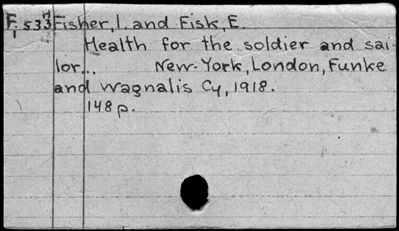 F 533 Fisher, I. and Fisk, E.
Health for the soldier and sai-
lor... New-York, London, Funke
and Wagnalis Cy, 1918.
148 p.